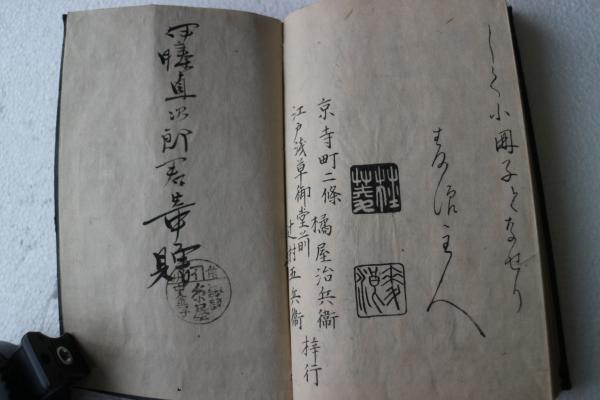 して小冊子となせり
主人
京寺町二條 橘屋治兵衛
江戸浅草御堂前 辻村五兵衛 梓行
伊藤直次郎君寄贈